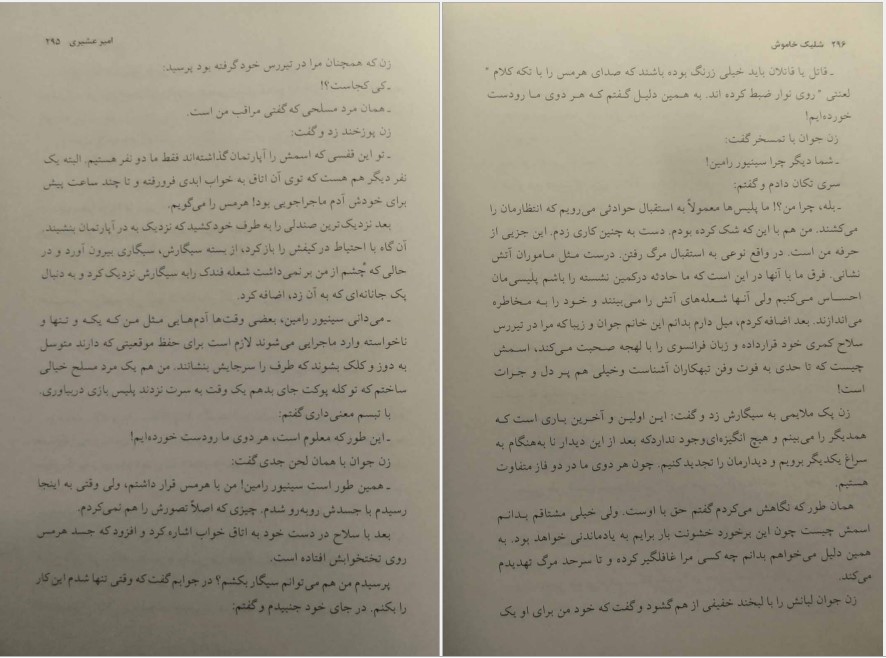 امیر عشیری ۲۹۵
زن که همچنان مرا در تیررس خود گرفته بود پرسید:
ـ کی کجاست؟!
ـ همان مرد مسلحی که گفتی مراقب من است.
زن پوزخند زد و گفت:
ـ تو این قفسی که اسمش را آپارتمان گذاشته‌اند فقط ما دو نفر هستیم. البته یک
نفر دیگر هم هست که توی آن اتاق به خواب ابدی فرورفته و تا چند ساعت پیش
برای خودش آدم ماجراجویی بود! هرمس را می‌گویم.
بعد نزدیک‌ترین صندلی را به طرف خود کشید که نزدیک به در آپارتمان بنشیند.
آن گاه با احتیاط در کیفش را باز کرد، از بسته سیگارش، سیگاری بیرون آورد و در
حالی که چشم از من بر نمی‌داشت شعله فندک را به سیگارش نزدیک کرد و به دنبال
پک جانانه‌ای که به آن زد، اضافه کرد.
ـ می‌دانی سینیور رامین، بعضی وقت‌ها آدم‌هایی مثل من که یکه و تنها و
ناخواسته وارد ماجرایی می‌شوند لازم است برای حفظ موقعیتی که دارند متوسل
به دوز و کلک بشوند که طرف را سرجایش بنشانند. من هم یک مرد مسلح خیالی
ساختم که تو کله پوکت جای بدهم یک وقت به سرت نزدند پلیس بازی دربیاوری.
با تبسم معنی‌داری گفتم:
ـ این طور که معلوم است، هر دوی ما رودست خورده‌ایم!
زن جوان با همان لحن جدی گفت:
ـ همین طور است سینیور رامین! من با هرمس قرار داشتم، ولی وقتی به اینجا
رسیدم با جسدش روبه‌رو شدم. چیزی که اصلاً تصورش را هم نمی‌کردم.
بعد با سلاح در دست خود به اتاق خواب اشاره کرد و افزود که جسد هرمس
روی تختخوابش افتاده است.
پرسیدم من هم می‌توانم سیگار بکشم؟ در جوابم گفت که وقتی تنها شدم این کار
را بکنم. در جای خود جنبیدم و گفتم:
۲۹۶ شلیک خاموش
ـ قاتل یا قاتلان باید خیلی زرنگ بوده باشند که صدای هرمس را با تکه کلام "
لعنتی " روی نوار ضبط کرده اند. به همین دلیل گفتم که هر دوی ما رودست
خورده‌ایم!
زن جوان با تمسخر گفت:
ـ شما دیگر چرا سینیور رامین!
سری تکان دادم و گفتم:
ـ بله، چرا من؟! ما پلیس‌ها معمولاً به استقبال حوادثی می‌رویم که انتظارمان را
می‌کشند. من هم با این که شک کرده بودم. دست به چنین کاری زدم. این جزیی از
حرفه من است. در واقع نوعی به استقبال مرگ رفتن. درست مثل ماموران آتش
نشانی. فرق ما با آنها در این است که ما حادثه درکمین نشسته را باشم پلیسی‌مان
احساس می‌کنیم ولی آنها شعله‌های آتش را می‌بینند و خود را به مخاطره
می‌اندازند. بعد اضافه کردم، میل دارم بدانم این خانم جوان و زیبا که مرا در تیررس
سلاح کمری خود قرارداده و زبان فرانسوی را با لهجه صحبت می‌کند، اسمش
چیست که تا حدی به قوت وفن تبهکاران آشناست وخیلی هم پر دل و جرات
است!
زن پک ملایمی به سیگارش زد و گفت: این اولین و آخرین باری است که
همدیگر را می‌بینم و هیچ انگیزه‌ای وجود نداردکه بعد از این دیدار نا به‌هنگام به
سراغ یکدیگر برویم و دیدارمان را تجدید کنیم. چون هر دوی ما در دو قاز متفاوت
هستیم.
همان طور که نگاهش می‌کردم گفتم حق با اوست. ولی خیلی مشتاقم بدانم
اسمش چیست چون این برخورد خشونت بار برایم به یادماندنی خواهد بود. به
همین دلیل می‌خواهم بدانم چه کسی مرا غافلگیر کرده و تا سرحد مرگ تهدیدم
می‌کند.
زن جوان لبانش را با لبخند خفیفی از هم گشود و گفت که خود من برای او یک